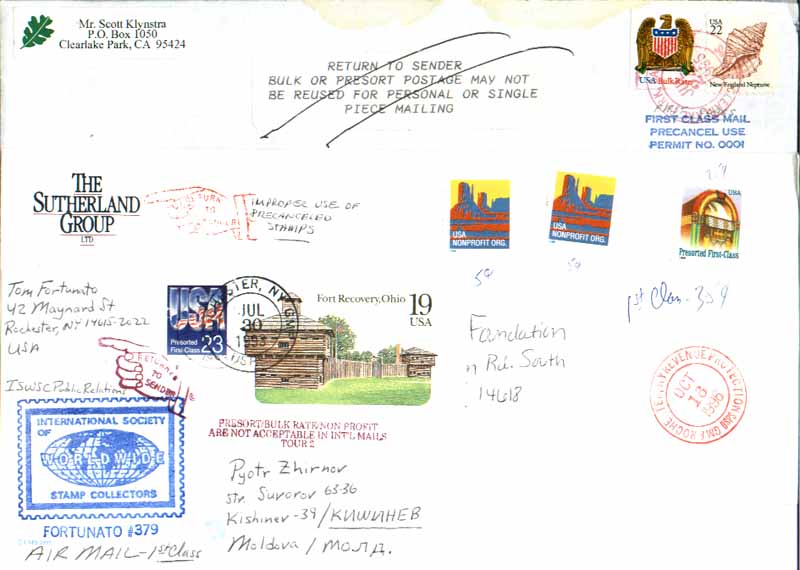 Mr. Scott Klynstra
P.O. Box 1050
Clearlake Park, CA 95424
RETURN TO SENDER
BULK OR PRESORT POSTAGE MAY NOT
BE REUSED FOR PERSONAL OR SINGLE
PIECE MAILING
USA Bulk Rate
USA
22
New England Neptune
FIRST CLASS MAIL
PRECANCEL USE
PERMIT NO. 0001
THE
SUTHERLAND
GROUP
LTD
RETURN
TO
IMPROPER USE OF
PRECANCELED
STAMPS
USA
NONPROFIT ORG.
USA
NONPROFIT ORG.
USA
Presorted First-Class
5¢
5¢
1st Class
Foundation
Rd. South
14618
OCT
1996
Tom Fortunato
42 Maynard St
Rochester, NY 14615-2022
USA
ISWSC Public Relations
USA
Presorted
First-Class 23
JUL
30
1993
Fort Recovery, Ohio
19
USA
RETURNED
TO
SENDER
PRESORT/BULK RATE/NON PROFIT
ARE NOT ACCEPTABLE IN INT'L MAILS
TOUR 2
INTERNATIONAL SOCIETY
OF
WORLDWIDE
STAMP COLLECTORS
FORTUNATO #379
AIR MAIL-1st Class
Pyotr Zhirnov
str. Suvorov 63-36
Kishinev-39/КИШИНЕВ
Moldova/МОЛД.